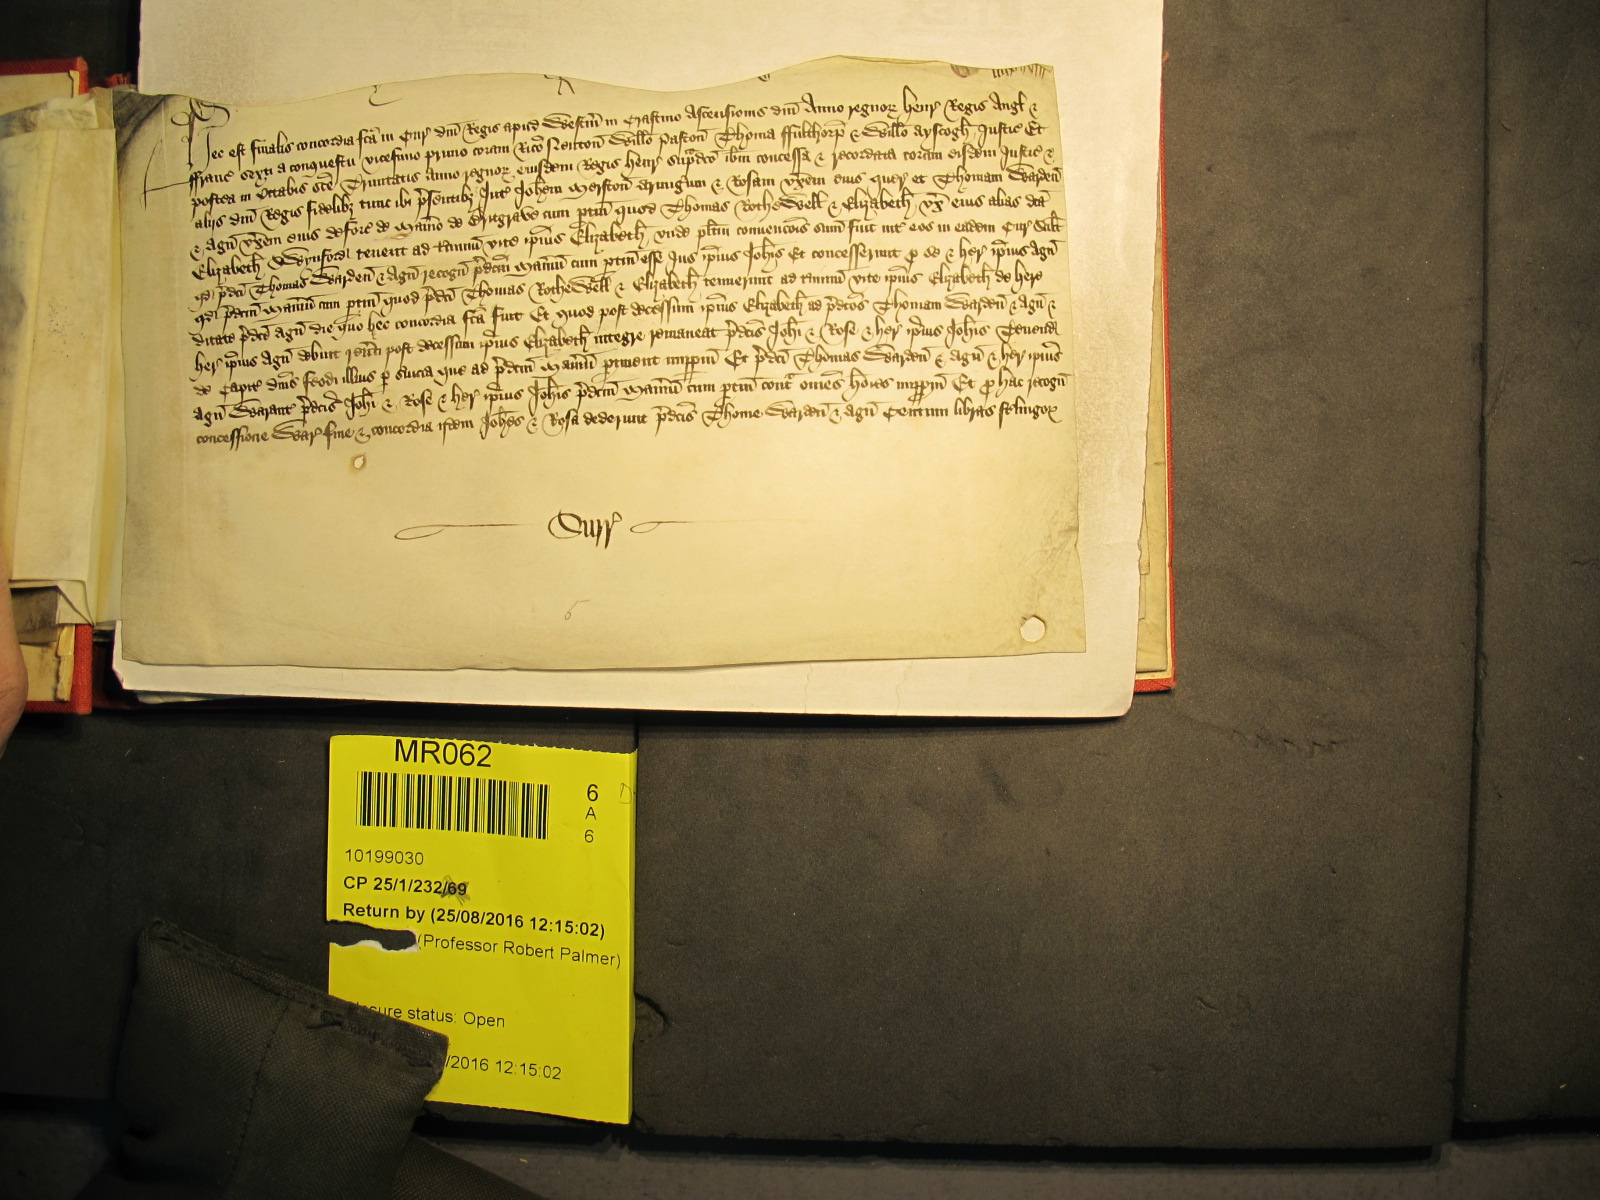 Hec est finalis concordia fca in Cur dni Regis apud Westm in Crastino Ascensionis dni Anno regnor Henr Regis Angl &
ffranc sexti a conquestu vicesimo primo coram Rico Neuton Willo Paston Thoma ffulthorp & Willo Ayscogh Justic Et
postea in Octabis sce Trinitatis Anno regnor eiusdem Regis Henr supradco ibm concessa & recordata coram eisdem Justic &
alijs dni Regis fidelibz tunc ibi psentibz Int Johem Merston Armigum & Rosam vxem eius quer et Thomam Warden
& Agn vxem eius deforc de Manio de cum ptin quod Thomas Rothewell & Elizabeth vx eius alias dca
Elizabeth Wynford tenent ad tminu vite ipius Elizabeth vnde plitm convencois sum fuit int eos in eadem Cur Scilt
qd pdci Thomas Warden & Agn recogn pdcm Maniu cum ptin esse Jus ipius Johis Et concesserunt p se & her ipius Agn
qd pdcm Maniu cum ptin quod pdci Thomas Rothewell & Elizabeth tenuerunt ad tminu vite ipius Elizabeth de here
ditate pdce Agn die quo hec concordia fca fuit Et quod post decessum ipius Elizabeth ad pdcos Thomam Warden & Agn &
her ipius Agn debuit reverti post decessum ipius Elizabeth integre remaneat pdcis Johi & Rose & her ipius Johis Tenend
de Capit dnis feodi illius p suicia que ad pdcm Maniu ptinent imppm Et pdci Thomas Warden & Agn & her ipius
Agn Warant pdcis Johi & Rose & her ipius Johis pdcm Maniu cum ptin cont omes hoies imppm Et p hac recogn
concessione War fine & concordia ijdem Johes & Rosa dederunt pdcis Thome Warden & Agn Centum libras sterlingor
Surr
5
MR062
6
A
6
10199030
CP 25/1/232/69
Return by (25/08/2016 12:15:02)
(Professor Robert Palmer)
status: Open
/2016 12:15:02